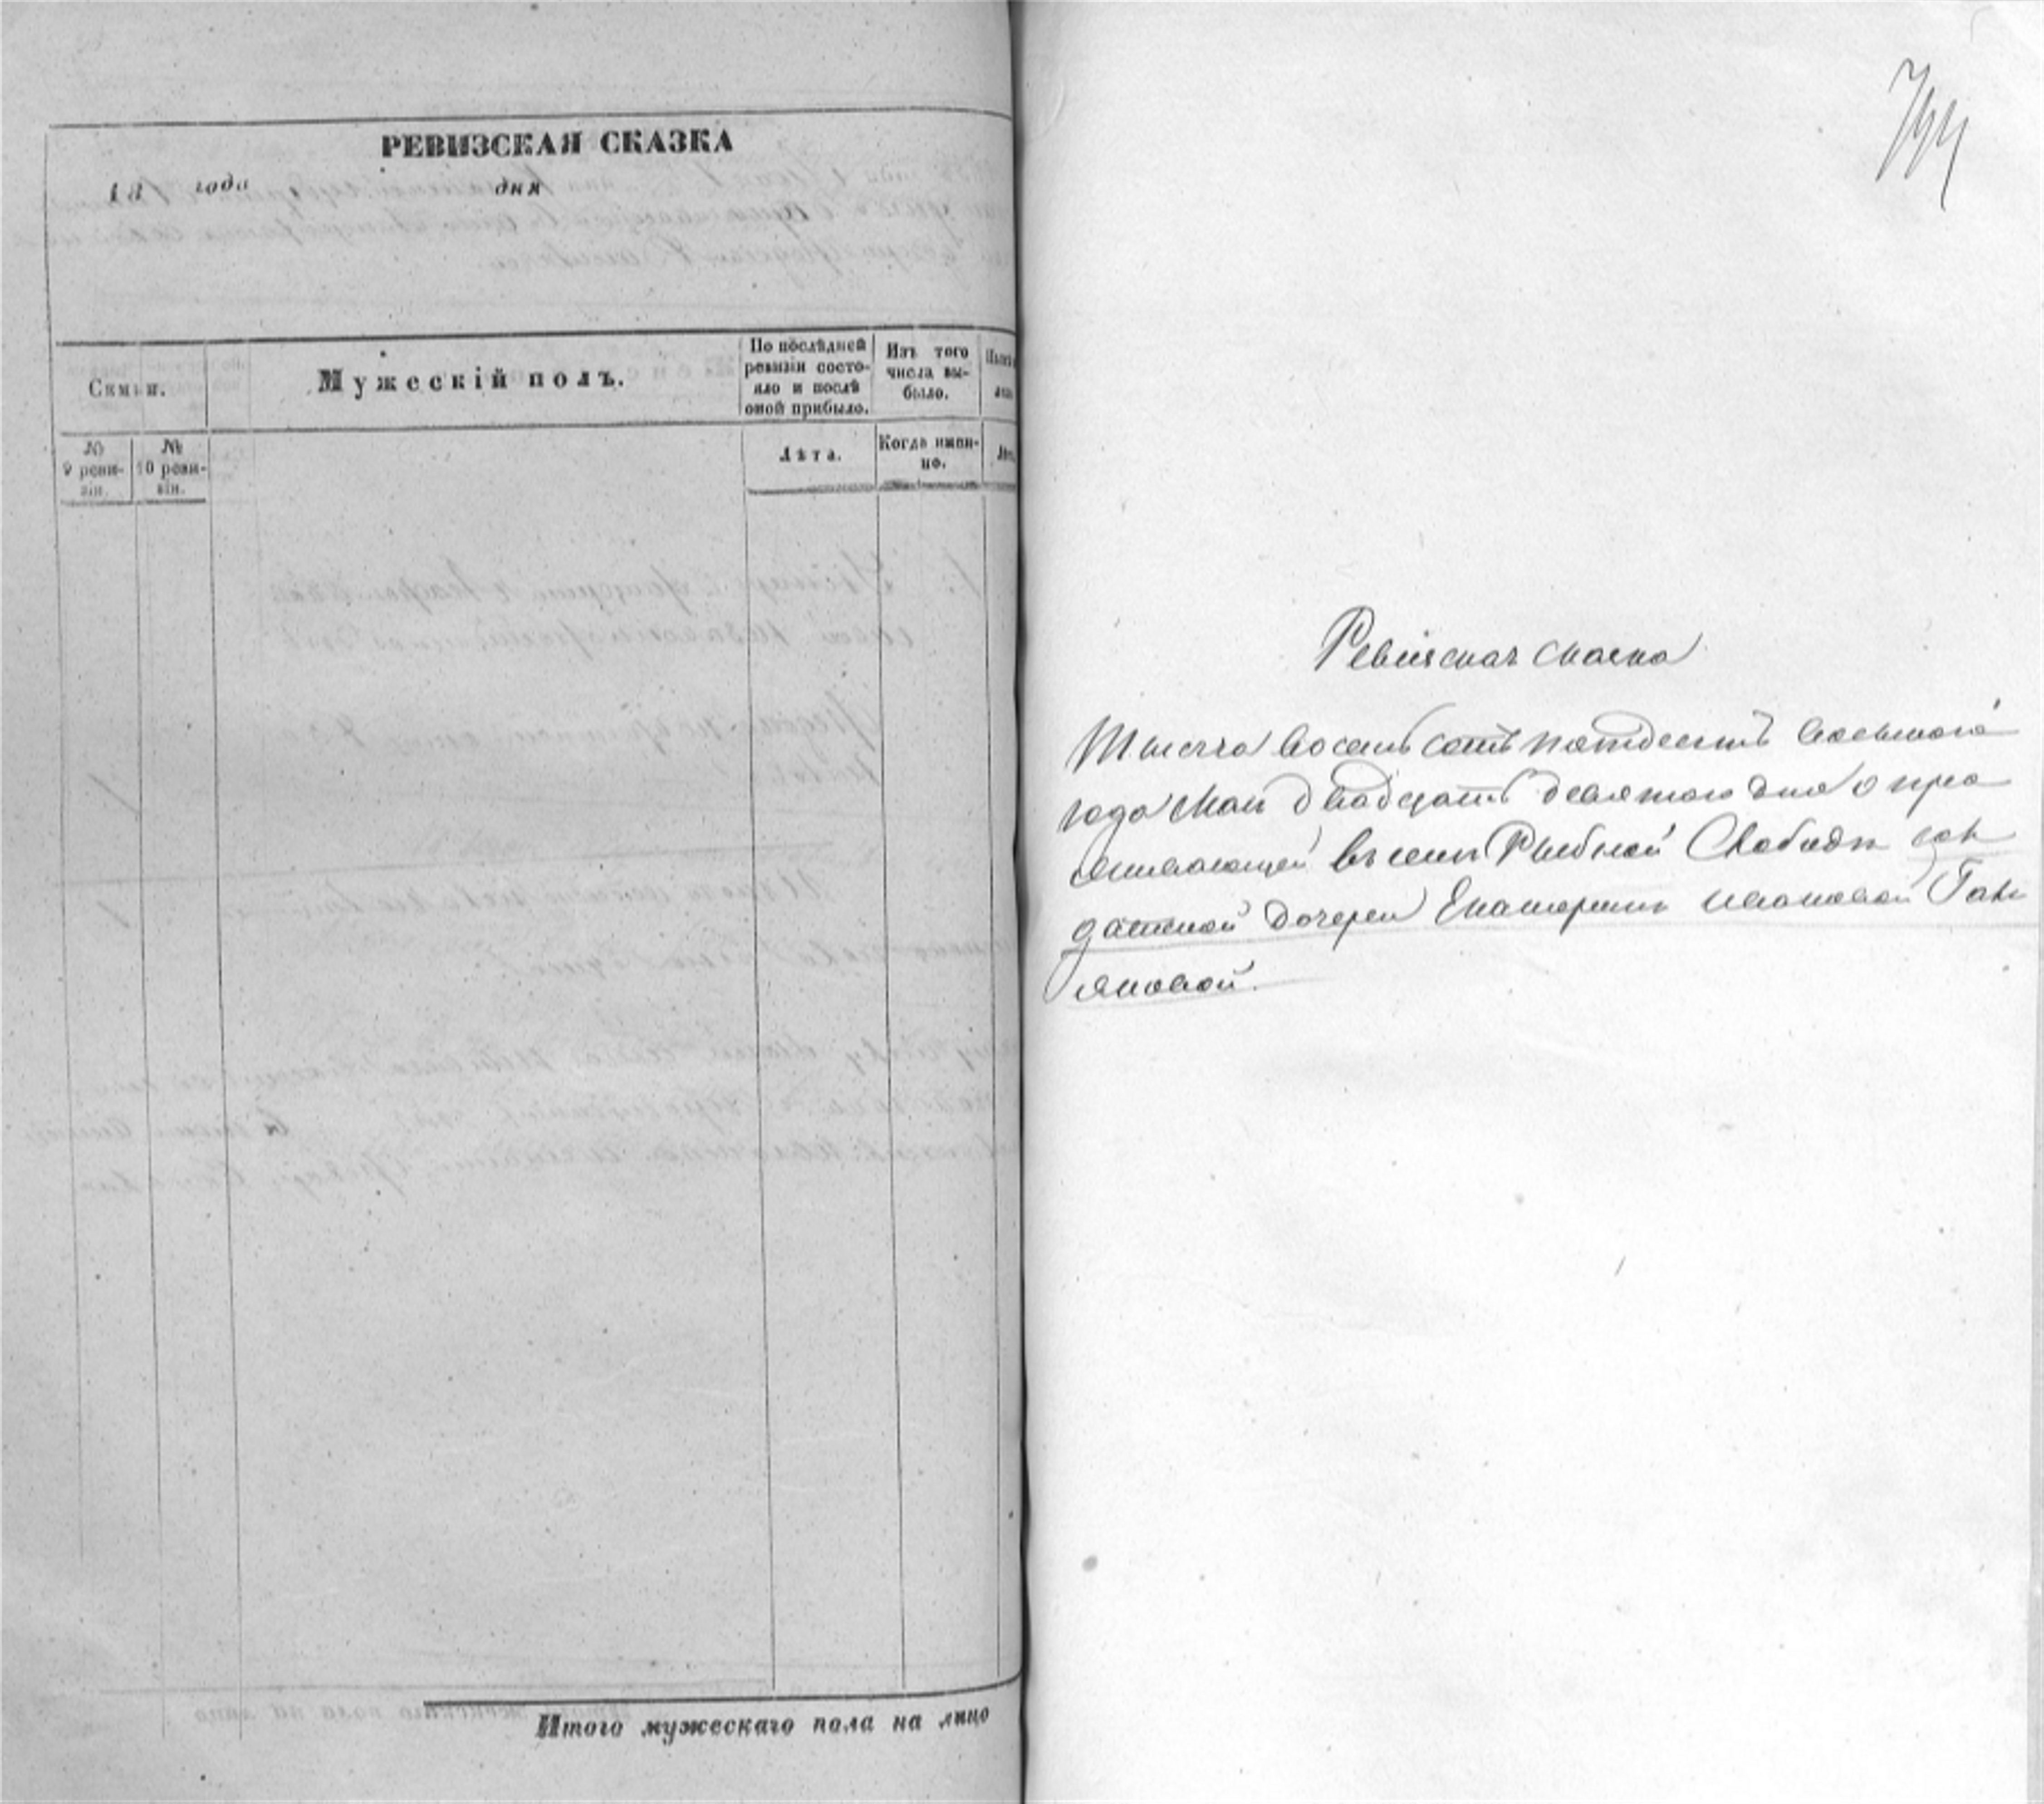 РЕВИЗСКАЯ СКАЗКА
18 года дня
Семьи.
Мужескій полъ.
По послѣдней ревизіи состо-
яло и послѣ оной прибыло.
Изъ того числа вы-
было.
№ 9 реви-
зіи.
№ 10 реви-
зіи.
Лѣта.
Когда имен-
но.
Итого мужескаго пола на лицо
794
Ревизская сказка
Тысяча восемь сотъ пятдесятъ восьмаго
года Мая двадцать девятого дня о про
живающей въ селе Рыбной Слободѣ сол
датской дочери Екатерины Ивановой Гав